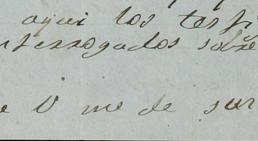 aqui los testi
nterrogados sobre
e V me de sur